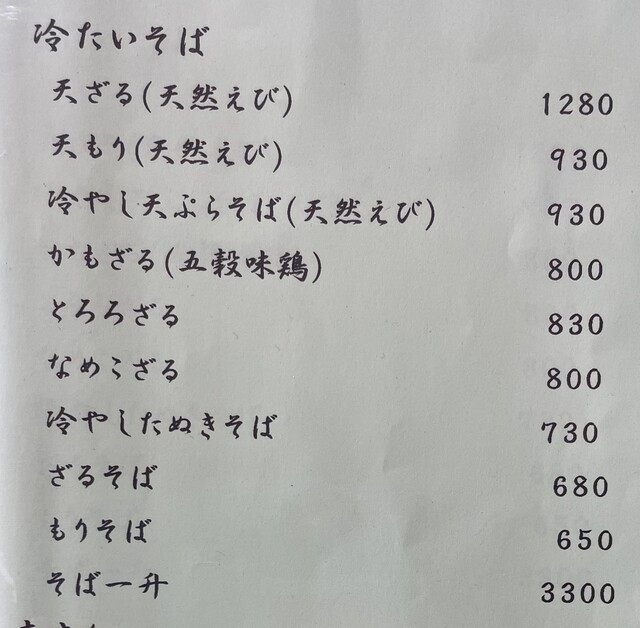 冷たいそば
天ざる(天然えび) 1280
天もり(天然えび) 930
冷やし天ぷらそば(天然えび) 930
かもざる(五穀味鶏) 800
とろろざる 830
なめこざる 800
冷やしたぬきそば 730
ざるそば 680
もりそば 650
そば一升 3300